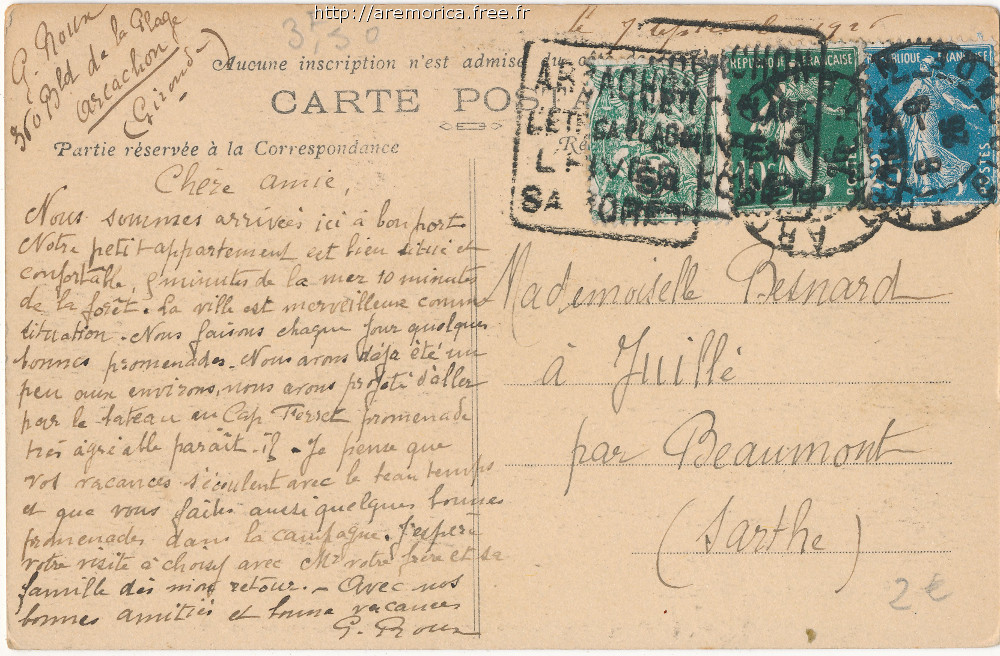 http://aremorica.free.fr
G. Roux
360 Bld de la Plage
Arcachon
(Gironde)
3,50
Aucune inscription n'est admise du
CARTE POSTA
Partie réservée à la Correspondance
ARCACHON
SA PLAGE
SA FORET
REPUBLIQUE FRANÇAISE
POSTES
Chère amie,
Nous sommes arrivées ici à bon port
Notre petit appartement est bien situé et
confortable, 5 minutes de la mer 10 minutes
de la forêt. La ville est merveilleuse comme
situation. Nous faisons chaque jour quelques
bonnes promenades. Nous avons déjà été un
peu aux environs, nous avons projeté d'aller
par le bateau au Cap Ferret promenade
très agréable paraît-il. Je pense que
vos vacances s'écoulent avec le beau temps
et que vous faites aussi quelques bonnes
promenades dans la campagne. J'espère
votre visite à Choisy avec Mr votre frère et sa
famille dès mon retour. - Avec nos
bonnes amitiés et bonne vacances
G. Roux
Mademoiselle Besnard
à Juillé
par Beaumont
(Sarthe)
2€